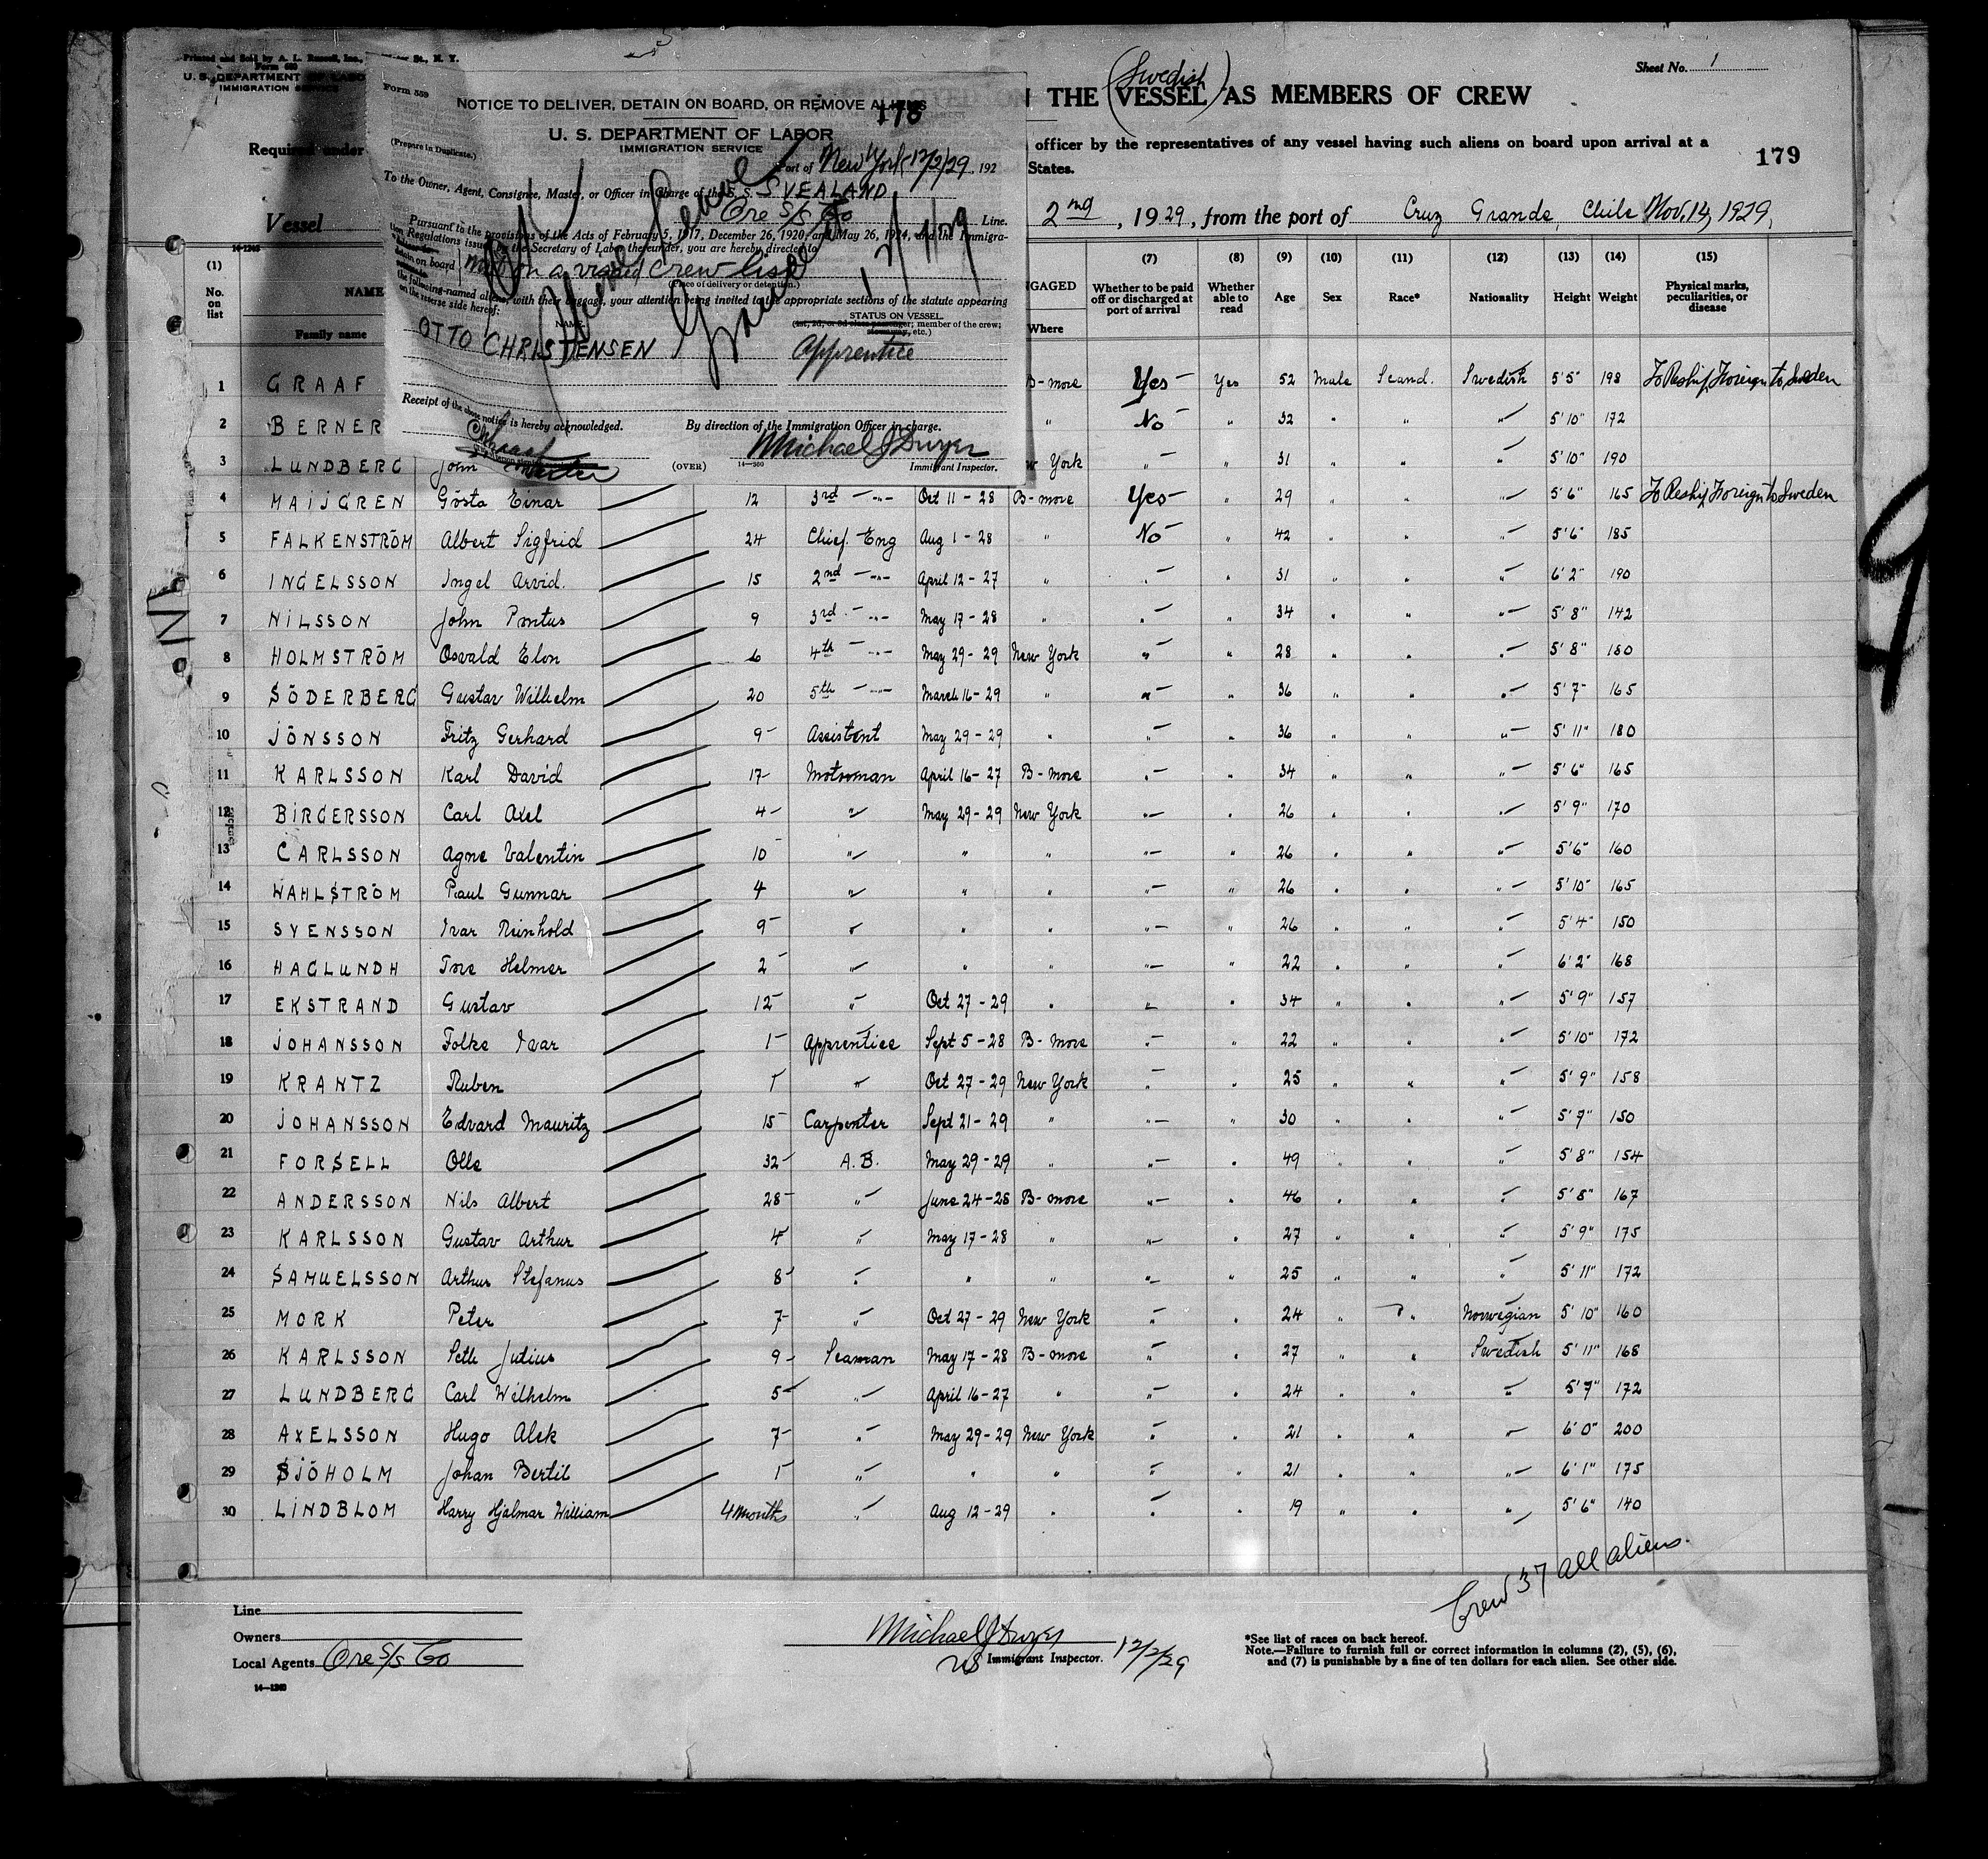 Printed and Sold by A. L. Russell, Inc., St., N. Y.
Form 689
U. S. DEPARTMENT OF LABO
IMMIGRATION SERVICE
Required under
Vessel
Form 559
NOTICE TO DELIVER, DETAIN ON BOARD, OR REMOVE ALIENS
178
(Prepare in Duplicate.)
U. S. DEPARTMENT OF LABOR
IMMIGRATION SERVICE
Port of New York 12/2/29, 192
To the Owner, Agent, Consignee, Master, or Officer in Charge of the S. S. SVEALAND
Ore S/S Co Line.
Pursuant to the provisions of the Acts of February 5, 1917, December 26, 1920, and May 26, 1924, and the Immigra-
tion Regulations issued by the Secretary of Labor thereunder, you are hereby directed to
detain on board not on a visaed crew list
(Place of delivery or detention.)
the following-named aliens, with their baggage, your attention being invited to the appropriate sections of the statute appearing
on the reverse side hereof:
NAME. STATUS ON VESSEL.
(1st, 2d, or 3d class passenger; member of the crew; stowaway, etc.)
OTTO CHRISTENSEN Apprentice
12/11/29
Receipt of the above notice is hereby acknowledged. By direction of the Immigration Officer in charge.
Michael J Dwyer
(OVER) 14—360 Immigrant Inspector.
Sheet No. 1
N THE (Swedish VESSEL) AS MEMBERS OF CREW
officer by the representatives of any vessel having such aliens on board upon arrival at a
States.
179
2nd, 1929, from the port of Cruz Grande, Chile Nov. 14, 1929,
14—1265
(1) (7) (8) (9) (10) (11) (12) (13) (14) (15)
No. on list NAME Family name NGAGED Where Whether to be paid off or discharged at port of arrival Whether able to read Age Sex Race* Nationality Height Weight Physical marks, peculiarities, or disease
1 GRAAF B-more Yes Yes 52 Male Scand. Swedish 5'5" 198 To Reship Foreign to Sweden
2 BERNER " No " 32 " " " 5'10" 172
3 LUNDBERG John York " " 31 " " " 5'10" 190
4 MAIJGREN Gösta Einar 12 3rd -"- Oct 11-28 B-more Yes " 29 " " " 5'6" 165 To Reship Foreign to Sweden
5 FALKENSTRÖM Albert Sigfrid 24 Chief Eng Aug 1-28 " No " 42 " " " 5'6" 185
6 INGELSSON Ingel Arvid. 15 2nd -"- April 12-27 " " " 31 " " " 6'2" 190
7 NILSSON John Pontus 9 3rd -"- May 17-28 " " " 34 " " " 5'8" 142
8 HOLMSTRÖM Osvald Elon 6 4th -"- May 29-29 New York " " 28 " " " 5'8" 180
9 SÖDERBERG Gustav Wilhelm 20 5th -"- March 16-29 " " " 36 " " " 5'7" 165
10 JÖNSSON Fritz Gerhard 9 Assistent May 29-29 " " " 36 " " " 5'11" 180
11 KARLSSON Karl David 17 Motorman April 16-27 B-more " " 34 " " " 5'6" 165
12 BIRGERSSON Carl Axel 4 " May 29-29 New York " " 26 " " " 5'9" 170
13 CARLSSON Agne Valentin 10 " " " " " 26 " " " 5'6" 160
14 WAHLSTRÖM Paul Gunnar 4 " " " " " 26 " " " 5'10" 165
15 SVENSSON Ivar Reinhold 9 " " " " " 26 " " " 5'4" 150
16 HAGLUNDH Tore Helmer 2 " " " " " 22 " " " 6'2" 168
17 EKSTRAND Gustav 12 " Oct 27-29 " " " 34 " " " 5'9" 157
18 JOHANSSON Folke Ivar 1 Apprentice Sept 5-28 B-more " " 22 " " " 5'10" 172
19 KRANTZ Ruben 1 " Oct 27-29 New York " " 25 " " " 5'9" 158
20 JOHANSSON Edvard Mauritz 15 Carpenter Sept 21-29 " " " 30 " " " 5'7" 150
21 FORSELL Olle 32 A.B. May 29-29 " " " 49 " " " 5'8" 154
22 ANDERSSON Nils Albert 28 " June 24-28 B-more " " 46 " " " 5'8" 167
23 KARLSSON Gustav Arthur 4 " May 17-28 " " " 27 " " " 5'9" 175
24 SAMUELSSON Arthur Stefanus 8 " " " " " 25 " " " 5'11" 172
25 MORK Peter 7 " Oct 27-29 New York " " 24 " " Norwegian 5'10" 160
26 KARLSSON Seth Julius 9 Seaman May 17-28 B-more " " 27 " " Swedish 5'11" 168
27 LUNDBERG Carl Wilhelm 5 " April 16-27 " " " 24 " " " 5'7" 172
28 AXELSSON Hugo Alek 7 " May 29-29 New York " " 21 " " " 6'0" 200
29 SJÖHOLM Johan Bertil 1 " " " " " 21 " " " 6'1" 175
30 LINDBLOM Harry Hjalmar William 4 months " Aug 12-29 " " " 19 " " " 5'6" 140
Crew 37 all aliens.
Line
Owners
Local Agents Ore S/S Co
14—1265
Michael J Dwyer 12/2/29
US Immigrant Inspector.
*See list of races on back hereof.
Note.—Failure to furnish full or correct information in columns (2), (5), (6),
and (7) is punishable by a fine of ten dollars for each alien. See other side.